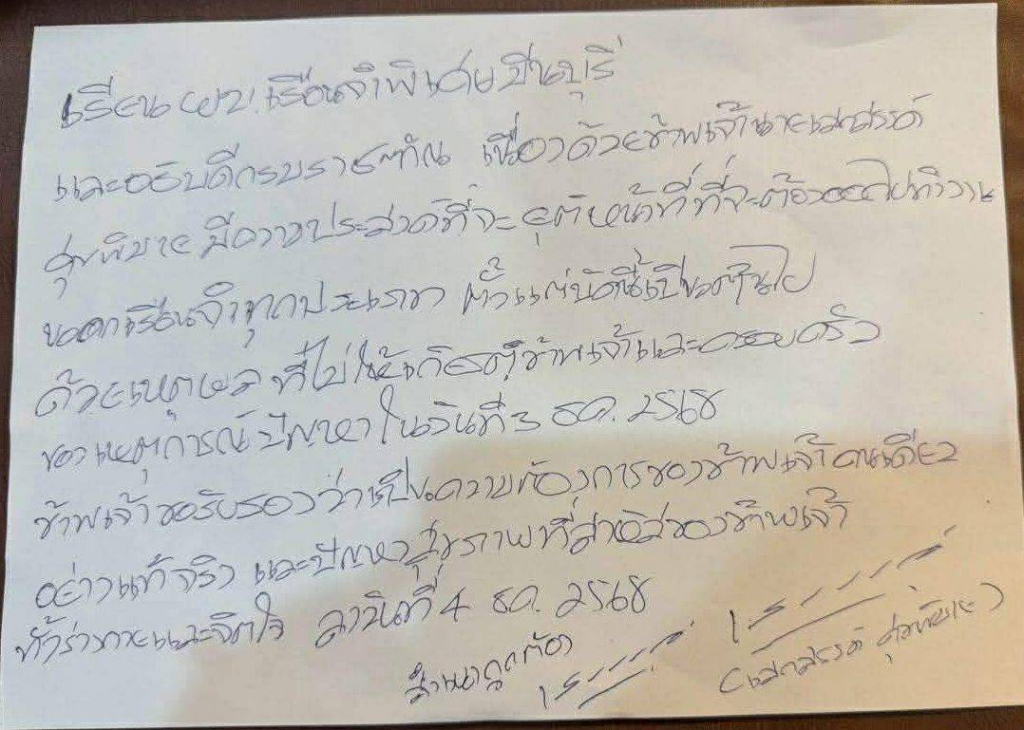 เรียน ผบ.เรือนจำพิเศษมีนบุรี
และอธิบดีกรมราชทัณ เนื่องด้วยข้าพเจ้านายเสกสรรค์
ศุขพิมาย มีความประสงค์ที่จะยุติหน้าที่ที่จะต้องออกไปทำงาน
นอกเรือนจำทุกประเภท ตั้งแต่บัดนี้เป็นต้นไป
ด้วยเหตุผล ที่ไม่ให้เกิดกับข้าพเจ้าและครอบครัว
ของเหตุการณ์ปัญหา ในวันที่ 3 ธค. 2568
ข้าพเจ้าขอรับรองว่าเป็นความต้องการของข้าพเจ้าคนเดียว
อย่างแท้จริง และปัญหาสุขภาพที่สาหัสของข้าพเจ้า
ทั้งร่างกายและจิตใจ ลงวันที่ 4 ธค. 2568
สำเนาถูกต้อง
(เสกสรรค์ ศุขพิมาย)